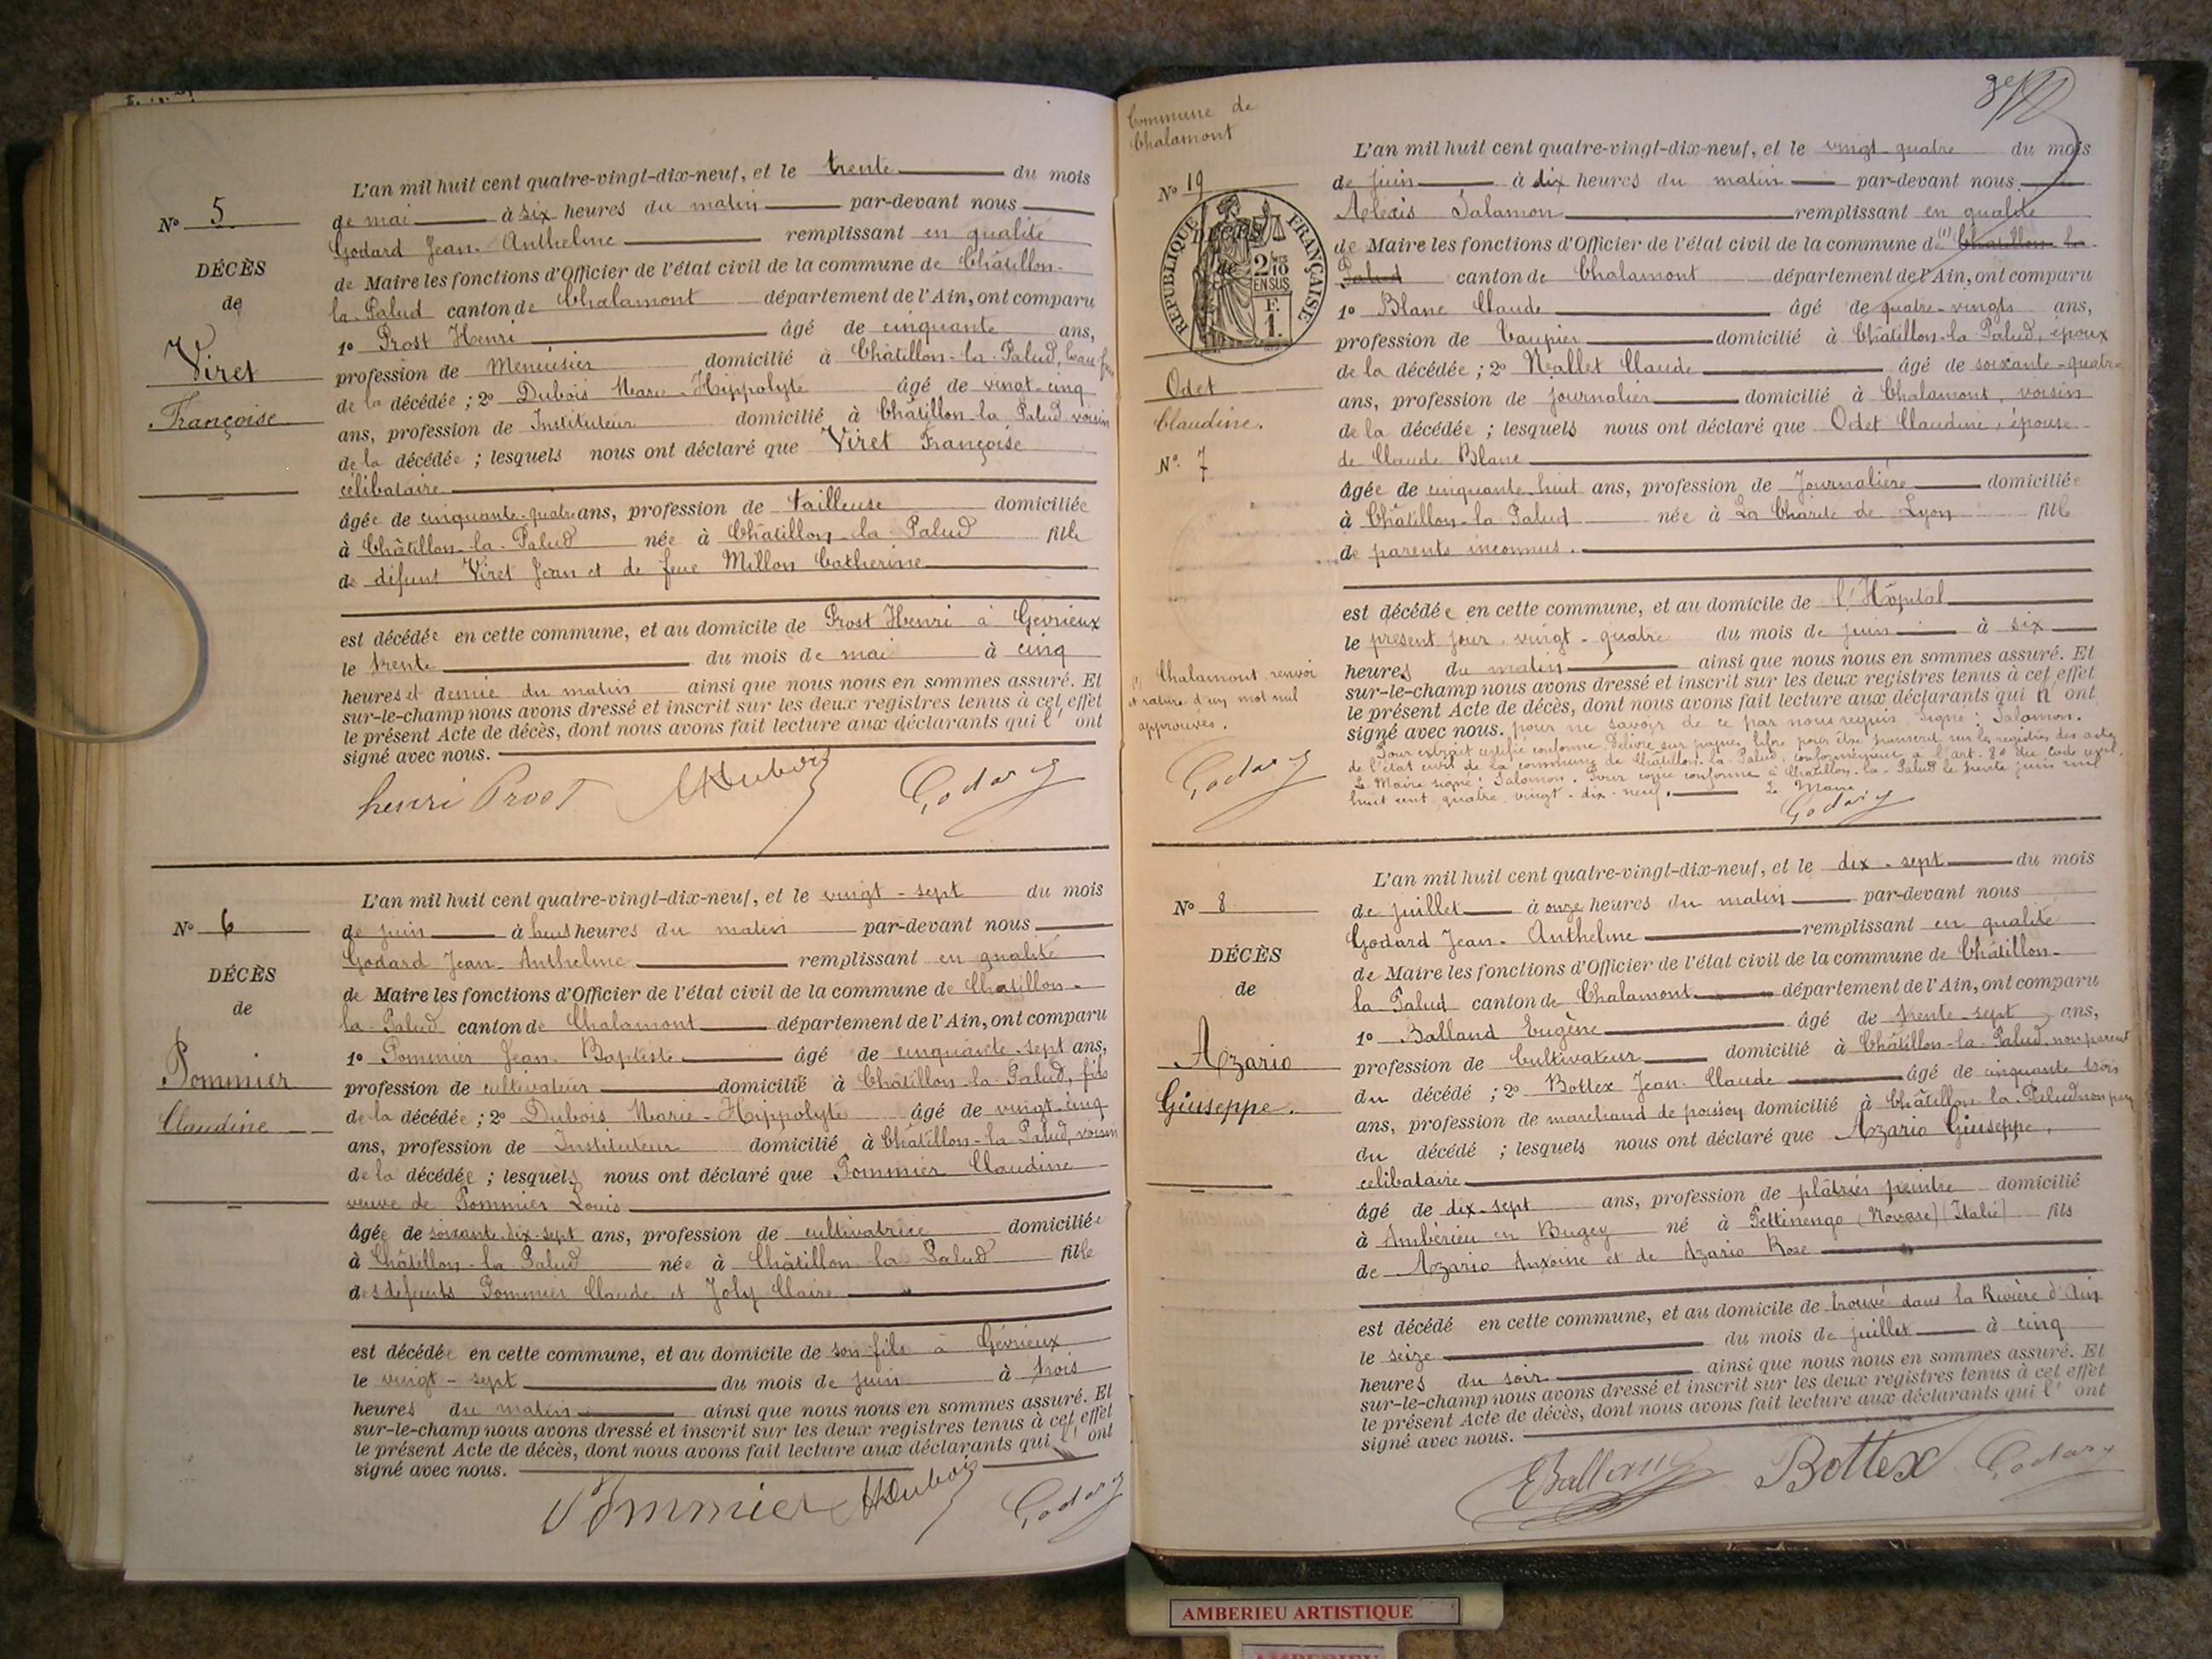 L'an mil huit cent quatre-vingt-dix-neuf, et le trente du mois
Nº 5
de mai à six heures du matin par-devant nous
Godard Jean-Anthelme remplissant en qualité
DÉCÈS
de Maire les fonctions d'Officier de l'état civil de la commune de Châtillon-
de
la-Palud canton de Chalamont département de l'Ain, ont comparu
1º Prost Henri âgé de cinquante ans,
Viret
profession de Menuisier domicilié à Châtillon-la-Palud, beau-frère
de la décédée ; 2º Dubois Marie-Hippolyte âgé de vingt-cinq
Françoise
ans, profession de Instituteur domicilié à Châtillon-la-Palud voisin
de la décédée ; lesquels nous ont déclaré que Viret Françoise
célibataire
âgée de cinquante-quatre ans, profession de tailleuse domiciliée
à Châtillon-la-Palud née à Châtillon-la-Palud fille
de défunt Viret Jean et de feue Millon Catherine
est décédée en cette commune, et au domicile de Prost Henri à Gévrieux
le trente du mois de mai à cinq
heures et demie du matin ainsi que nous nous en sommes assuré. Et
sur-le-champ nous avons dressé et inscrit sur les deux registres tenus à cet effet
le présent Acte de décès, dont nous avons fait lecture aux déclarants qui l' ont
signé avec nous.
henri Prost HDubois Godard
L'an mil huit cent quatre-vingt-dix-neuf, et le vingt-sept du mois
Nº 6
de juin à huit heures du matin par-devant nous
Godard Jean-Anthelme remplissant en qualité
DÉCÈS
de Maire les fonctions d'Officier de l'état civil de la commune de Châtillon-
de
la-Palud canton de Chalamont département de l'Ain, ont comparu
1º Pommier Jean-Baptiste âgé de cinquante-sept ans,
Pommier
profession de cultivateur domicilié à Châtillon-la-Palud, fils
Claudine
de la décédée ; 2º Dubois Marie-Hippolyte âgé de vingt-cinq
ans, profession de Instituteur domicilié à Châtillon-la-Palud, voisin
de la décédée ; lesquels nous ont déclaré que Pommier Claudine
veuve de Pommier Louis
âgée de soixante-dix-sept ans, profession de cultivatrice domiciliée
à Châtillon-la-Palud née à Châtillon-la-Palud fille
des défunts Pommier Claude et Joly Claire
est décédée en cette commune, et au domicile de son fils à Gévrieux
le vingt-sept du mois de juin à trois
heures du matin ainsi que nous nous en sommes assuré. Et
sur-le-champ nous avons dressé et inscrit sur les deux registres tenus à cet effet
le présent Acte de décès, dont nous avons fait lecture aux déclarants qui l' ont
signé avec nous.
Pommier HDubois Godard
Commune de
Chalamont
L'an mil huit cent quatre-vingt-dix-neuf, et le vingt-quatre du mois
Nº 19
de juin à dix heures du matin par-devant nous
Alexis Salamon remplissant en qualité
DÉCÈS
de
RÉPUBLIQUE FRANÇAISE
2/10 EN SUS
F. 1.
de Maire les fonctions d'Officier de l'état civil de la commune de (1) Chatillon-la-
Palud canton de Chalamont département de l'Ain, ont comparu
1º Blanc Claude âgé de quatre-vingts ans,
profession de Taupier domicilié à Châtillon-la-Palud, époux
Odet
de la décédée ; 2º Mallet Claude âgé de soixante-quatre
ans, profession de journalier domicilié à Chalamont, voisin
Claudine.
de la décédée ; lesquels nous ont déclaré que Odet Claudine, épouse
de Claude Blanc
Nº 7
âgée de cinquante-huit ans, profession de Journalière domiciliée
à Châtillon-la-Palud née à La Charité de Lyon fille
de parents inconnus.
est décédée en cette commune, et au domicile de l'Hôpital
le présent jour, vingt-quatre du mois de juin à six
heures du matin ainsi que nous nous en sommes assuré. Et
(1) Chalamont, renvoi
et rature d'un mot nul
approuvés.
Godard
sur-le-champ nous avons dressé et inscrit sur les deux registres tenus à cet effet
le présent Acte de décès, dont nous avons fait lecture aux déclarants qui n' ont
signé avec nous. pour ne savoir de ce par nous requis. Signé : Salamon.
Pour extrait certifié conforme. Délivré sur papier libre pour être transcrit sur les registres des actes
de l'état civil de la commune de Châtillon-la-Palud, conformément à l'art. 80 du Code civil.
Le Maire signé : Salamon. Pour copie conforme à Châtillon-la-Palud le trente juin mil
huit cent quatre-vingt-dix-neuf. Le Maire
Godard
L'an mil huit cent quatre-vingt-dix-neuf, et le dix-sept du mois
Nº 8
de juillet à onze heures du matin par-devant nous
Godard Jean-Anthelme remplissant en qualité
DÉCÈS
de Maire les fonctions d'Officier de l'état civil de la commune de Châtillon-
de
la-Palud canton de Chalamont département de l'Ain, ont comparu
1º Balland Eugène âgé de trente-sept ans,
Azario
profession de Cultivateur domicilié à Châtillon-la-Palud, non parent
du décédé ; 2º Bottex Jean-Claude âgé de cinquante trois
Giuseppe.
ans, profession de marchand de poisson domicilié à Châtillon-la-Palud non
du décédé ; lesquels nous ont déclaré que Azario Giuseppe,
célibataire
âgé de dix-sept ans, profession de plâtrier peintre domicilié
à Ambérieu en Bugey né à Pettinengo (Novare) (Italie) fils
de Azario Antoine et de Azario Rose
est décédé en cette commune, et au domicile de trouvé dans la Rivière d'Ain
le seize du mois de juillet à cinq
heures du soir ainsi que nous nous en sommes assuré. Et
sur-le-champ nous avons dressé et inscrit sur les deux registres tenus à cet effet
le présent Acte de décès, dont nous avons fait lecture aux déclarants qui l' ont
signé avec nous.
EBalland Bottex Godard
AMBERIEU ARTISTIQUE
AMBERIEU